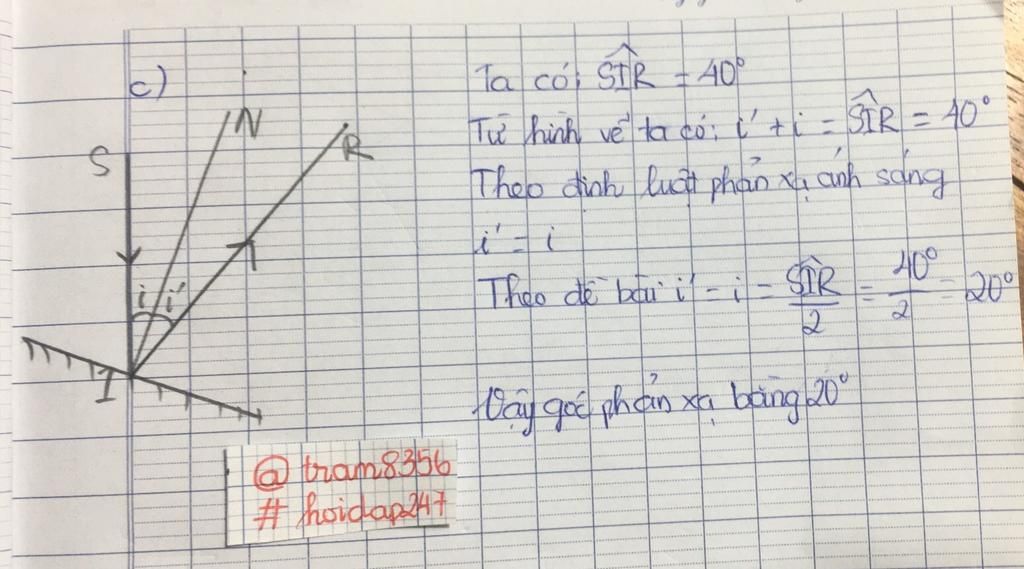 c)
N
R
S
i i'
I
Ta có: SIR = 40°
Từ hình vẽ ta có: i' + i = SIR = 40°
Theo định luật phản xạ ánh sáng
i' = i
Theo đề bài i' = i = SIR/2 = 40°/2 = 20°
Vậy góc phản xạ bằng 20°
@tram8356
# hoidap247